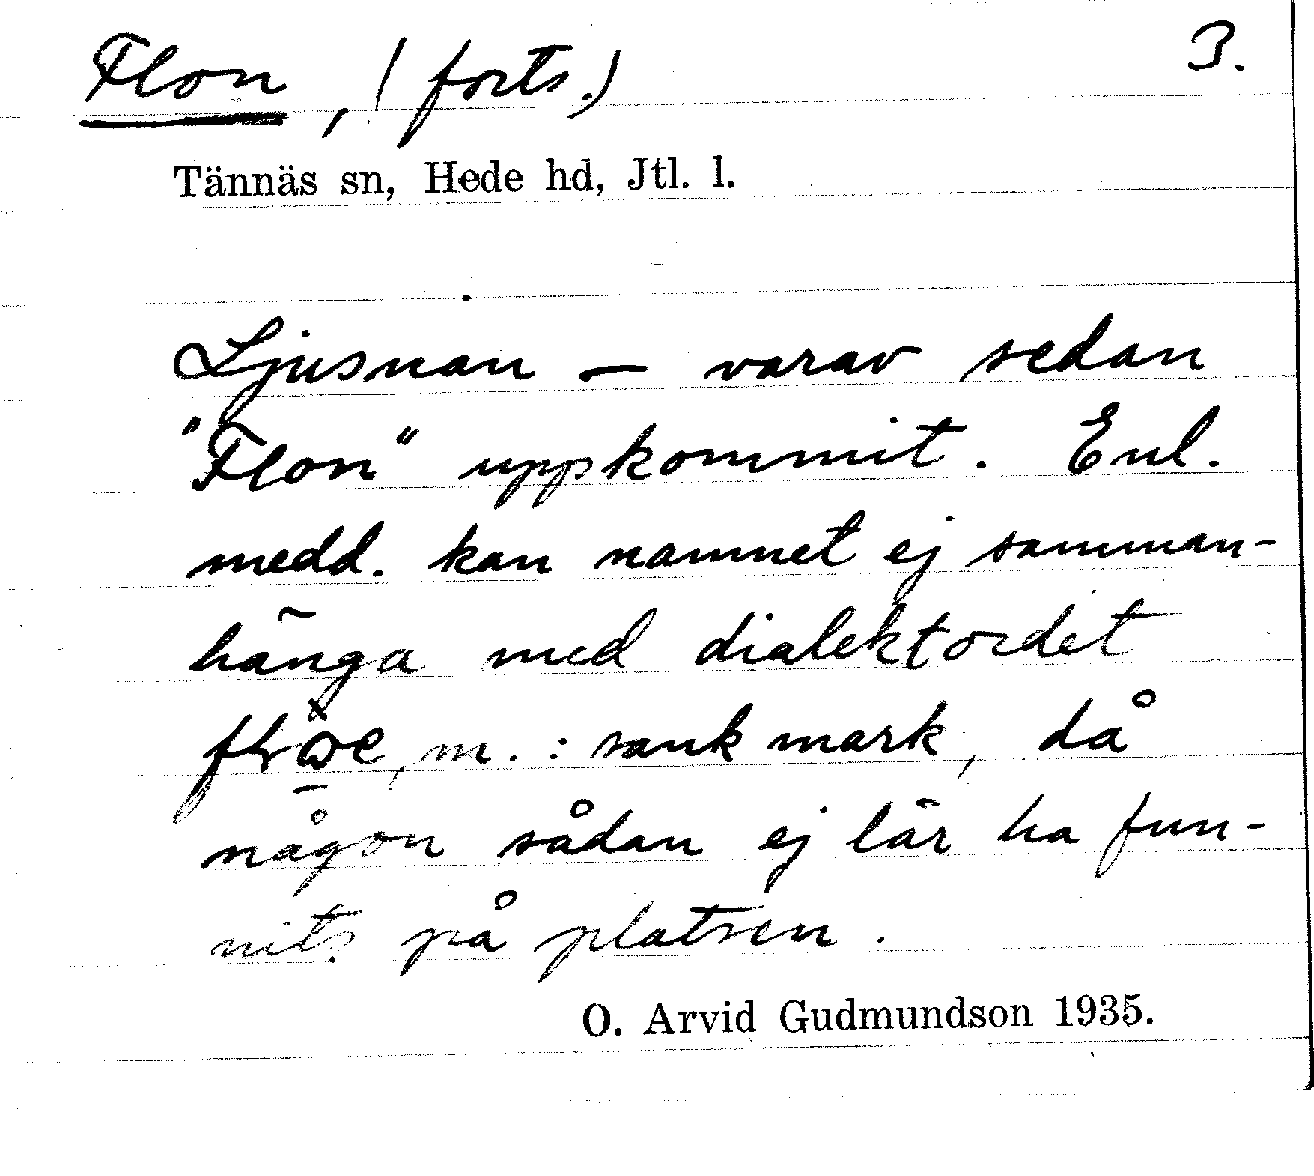 Flon, (forts.) 3.
Tännäs sn, Hede hd, Jtl. l.
Ljusnan — varav sedan
"Flon" uppkommit. Enl.
medd. kan namnet ej samman-
hänga med dialektordet
m. : sank mark, då
någon sådan ej lär ha fun-
nits på platsen.
O. Arvid Gudmundson 1935.